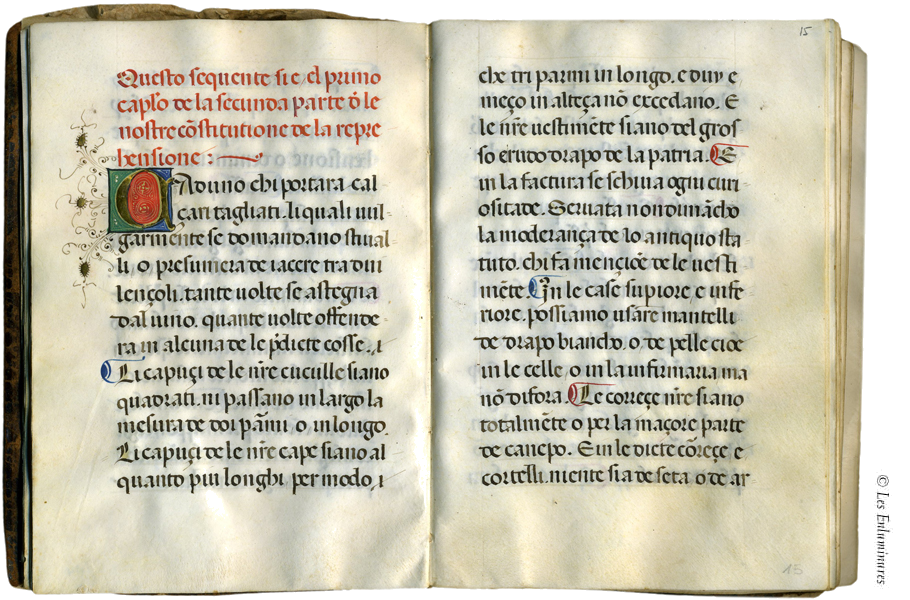 Questo sequente si e, el primo
cap̄lo de la secunda parte d̄ le
nostre cōstitutione de la repre
hensione :
Caduno chi portara cal
cari tagliati, li quali vul
garmente se domandano stival
li, o presumera de iacere tra dui
lençoli, tante volte se astegna
dal vino, quante volte offende
ra in alcuna de le p̄dicte cosse, i
Li capuçi de le nr̄e cuculle siano
quadrati, ni passano in largo la
mesura de doi pāni, o in longo.
Li capuçi de le nr̄e cape siano al
quanto piu longhi, per modo, i
15
che tri parmi in longo, e duy e
meço in alteça nō excedano. E
le nr̄e vestimēte siano del gros
so crudo drapo de la patria. E
in la factura se schiva ogni curi
ositade. Servata nondumācho
la moderança de lo antiquo sta
tuto, chi fa mencioē de le vesti
mēte. In le case supiore, e infe
riore, possiamo usare mantelli
de drapo biancho, o de pelle cioe
in le celle, o in la infirmaria ma
nō difora. Le coreçe nr̄e siano
totalmēte o per la maçore parte
de canepo. E in le dicte cōreçe, e
cortelli, niente sia de seta o de ar
15
© Les Enluminures